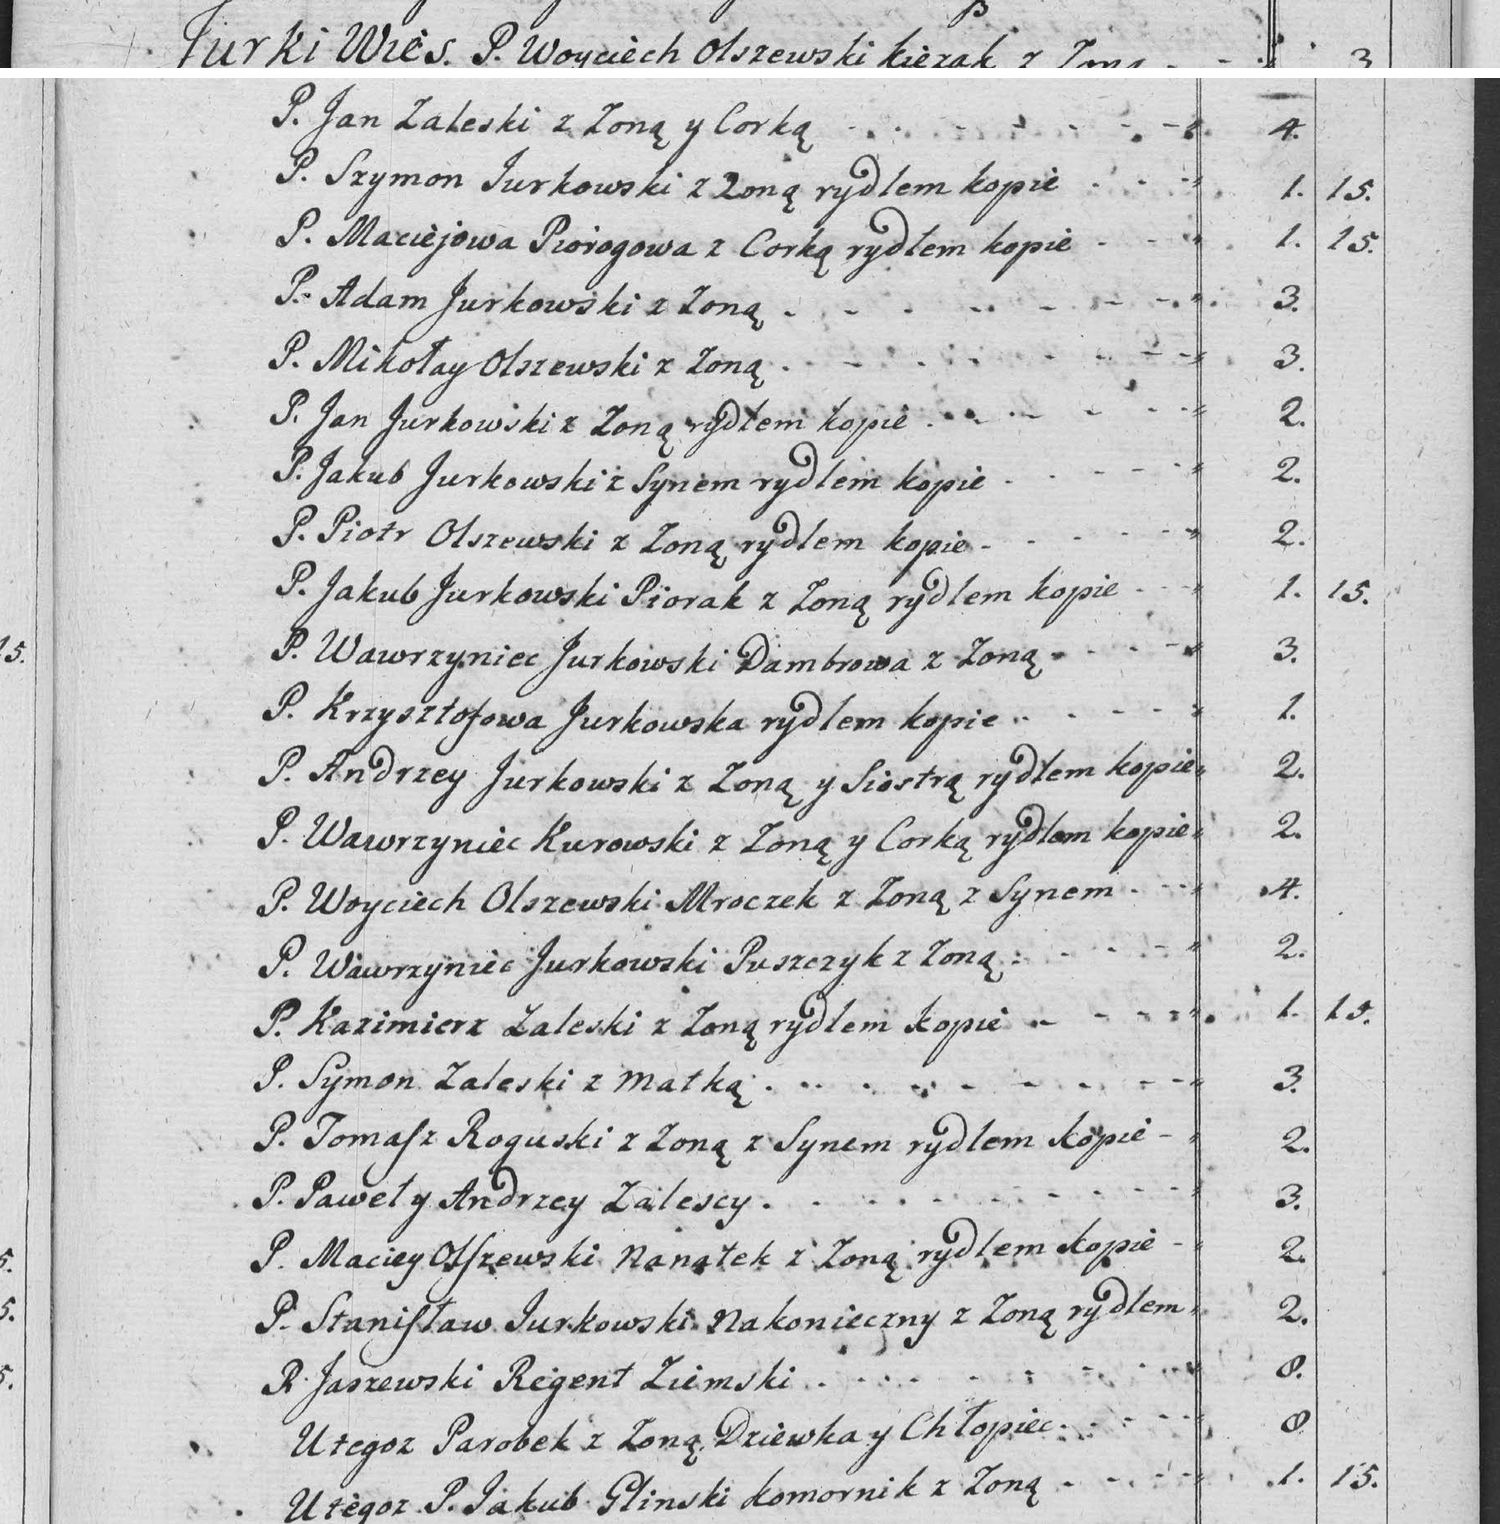 Jurki Wieś. P. Woyciech Olszewski kierak z Zoną - - 3
P. Jan Zaleski z Zoną y Corką 4.
P. Szymon Jurkowski z Zoną rydlem kopie 1. 15.
P. Maciejowa Piorogowa z Corką rydlem kopie 1. 15.
P. Adam Jurkowski z Zoną 3.
P. Mikołay Olszewski z Zoną 3.
P. Jan Jurkowski z Zoną rydlem kopie 2.
P. Jakub Jurkowski z Synem rydlem kopie 2.
P. Piotr Olszewski z Zoną rydlem kopie 2.
P. Jakub Jurkowski Piorak z Zoną rydlem kopie 1. 15.
15. P. Wawrzyniec Jurkowski Dambrowa z Zoną 3.
P. Krzysztofowa Jurkowska rydlem kopie 1.
P. Andrzey Jurkowski z Zoną y Siostrą rydlem kopie 2.
P. Wawrzyniec Kurowski z Zoną y Corką rydlem kopie 2.
P. Woyciech Olszewski Mroczek z Zoną z Synem 4.
P. Wawrzyniec Jurkowski Puszczyk z Zoną 2.
P. Kazimierz Zaleski z Zoną rydlem kopie 1. 15.
P. Symon Zaleski z Matką 3.
P. Tomasz Roguski z Zoną z Synem rydlem kopie 2.
P. Paweł y Andrzey Zalescy 3.
5. P. Maciey Olszewski Nanatek z Zoną rydlem kopie 2.
5. P. Stanisław Jurkowski Nakonieczny z Zoną rydlem 2.
5. P. Jaszewski Regent Ziemski 8.
Utegoz Parobek z Zoną, Dziewka y Chłopiec 8
Utegoz P. Jakub Glinski komornik z Zoną 1. 15.